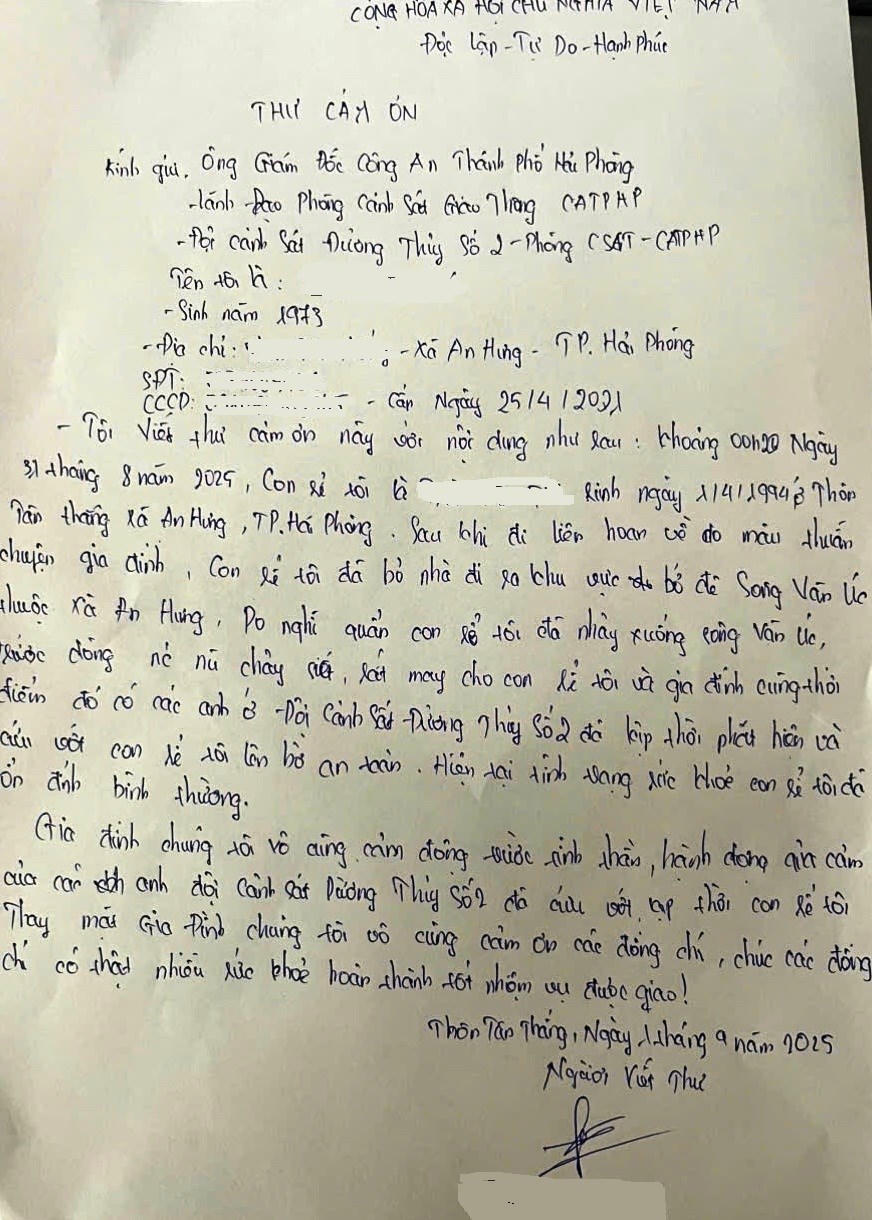 CỘNG HÒA XÃ HỘI CHỦ NGHĨA VIỆT NAM
Độc lập - Tự Do - Hạnh Phúc
THƯ CẢM ƠN
Kính gửi. Ông Giám Đốc Công An Thành Phố Hải Phòng
- Lãnh Đạo Phòng Cảnh Sát Giao Thông CATPHP
- Đội Cảnh Sát Đường Thủy Số 2 - Phòng CSGT - CATPHP
Tên tôi là :
- Sinh năm 1973
- Địa chỉ : - Xã An Hưng - TP. Hải Phòng
SĐT:
CCCD: - Cấp Ngày 25/4/2021
- Tôi Viết thư cảm ơn này với nội dung như sau : khoảng 00h20 Ngày
31 tháng 8 năm 2025, Con rể tôi là sinh ngày 1/4/1994 ở Thôn
Tân thắng xã An Hưng, TP. Hải Phòng. Sau khi đi liên hoan về do mâu thuẫn
chuyện gia đình, Con rể tôi đã bỏ nhà đi ra khu vực bờ đê Sông Văn Úc
thuộc xã An Hưng, Do nghĩ quẩn con rể tôi đã nhảy xuống sông Văn Úc,
nước dòng chảy siết, rất may cho con rể tôi và gia đình cùng thời
điểm đó có các anh ở Đội Cảnh Sát Đường Thủy Số 2 đã kịp thời phát hiện và
cứu vớt con rể tôi lên bờ an toàn. Hiện tại tình trạng sức khoẻ con rể tôi đã
ổn định bình thường.
Gia đình chúng tôi vô cùng cảm động trước tinh thần, hành động qủa cảm
của các anh đội Cảnh Sát Đường Thủy Số 2 đã cứu vớt kịp thời con rể tôi
Thay mặt Gia Đình chúng tôi vô cùng cảm ơn các đồng chí, chúc các đồng
chí có thật nhiều sức khoẻ hoàn thành tốt nhiệm vụ được giao!
Thôn Tân Thắng, Ngày 1 tháng 9 năm 2025
Người Viết Thư